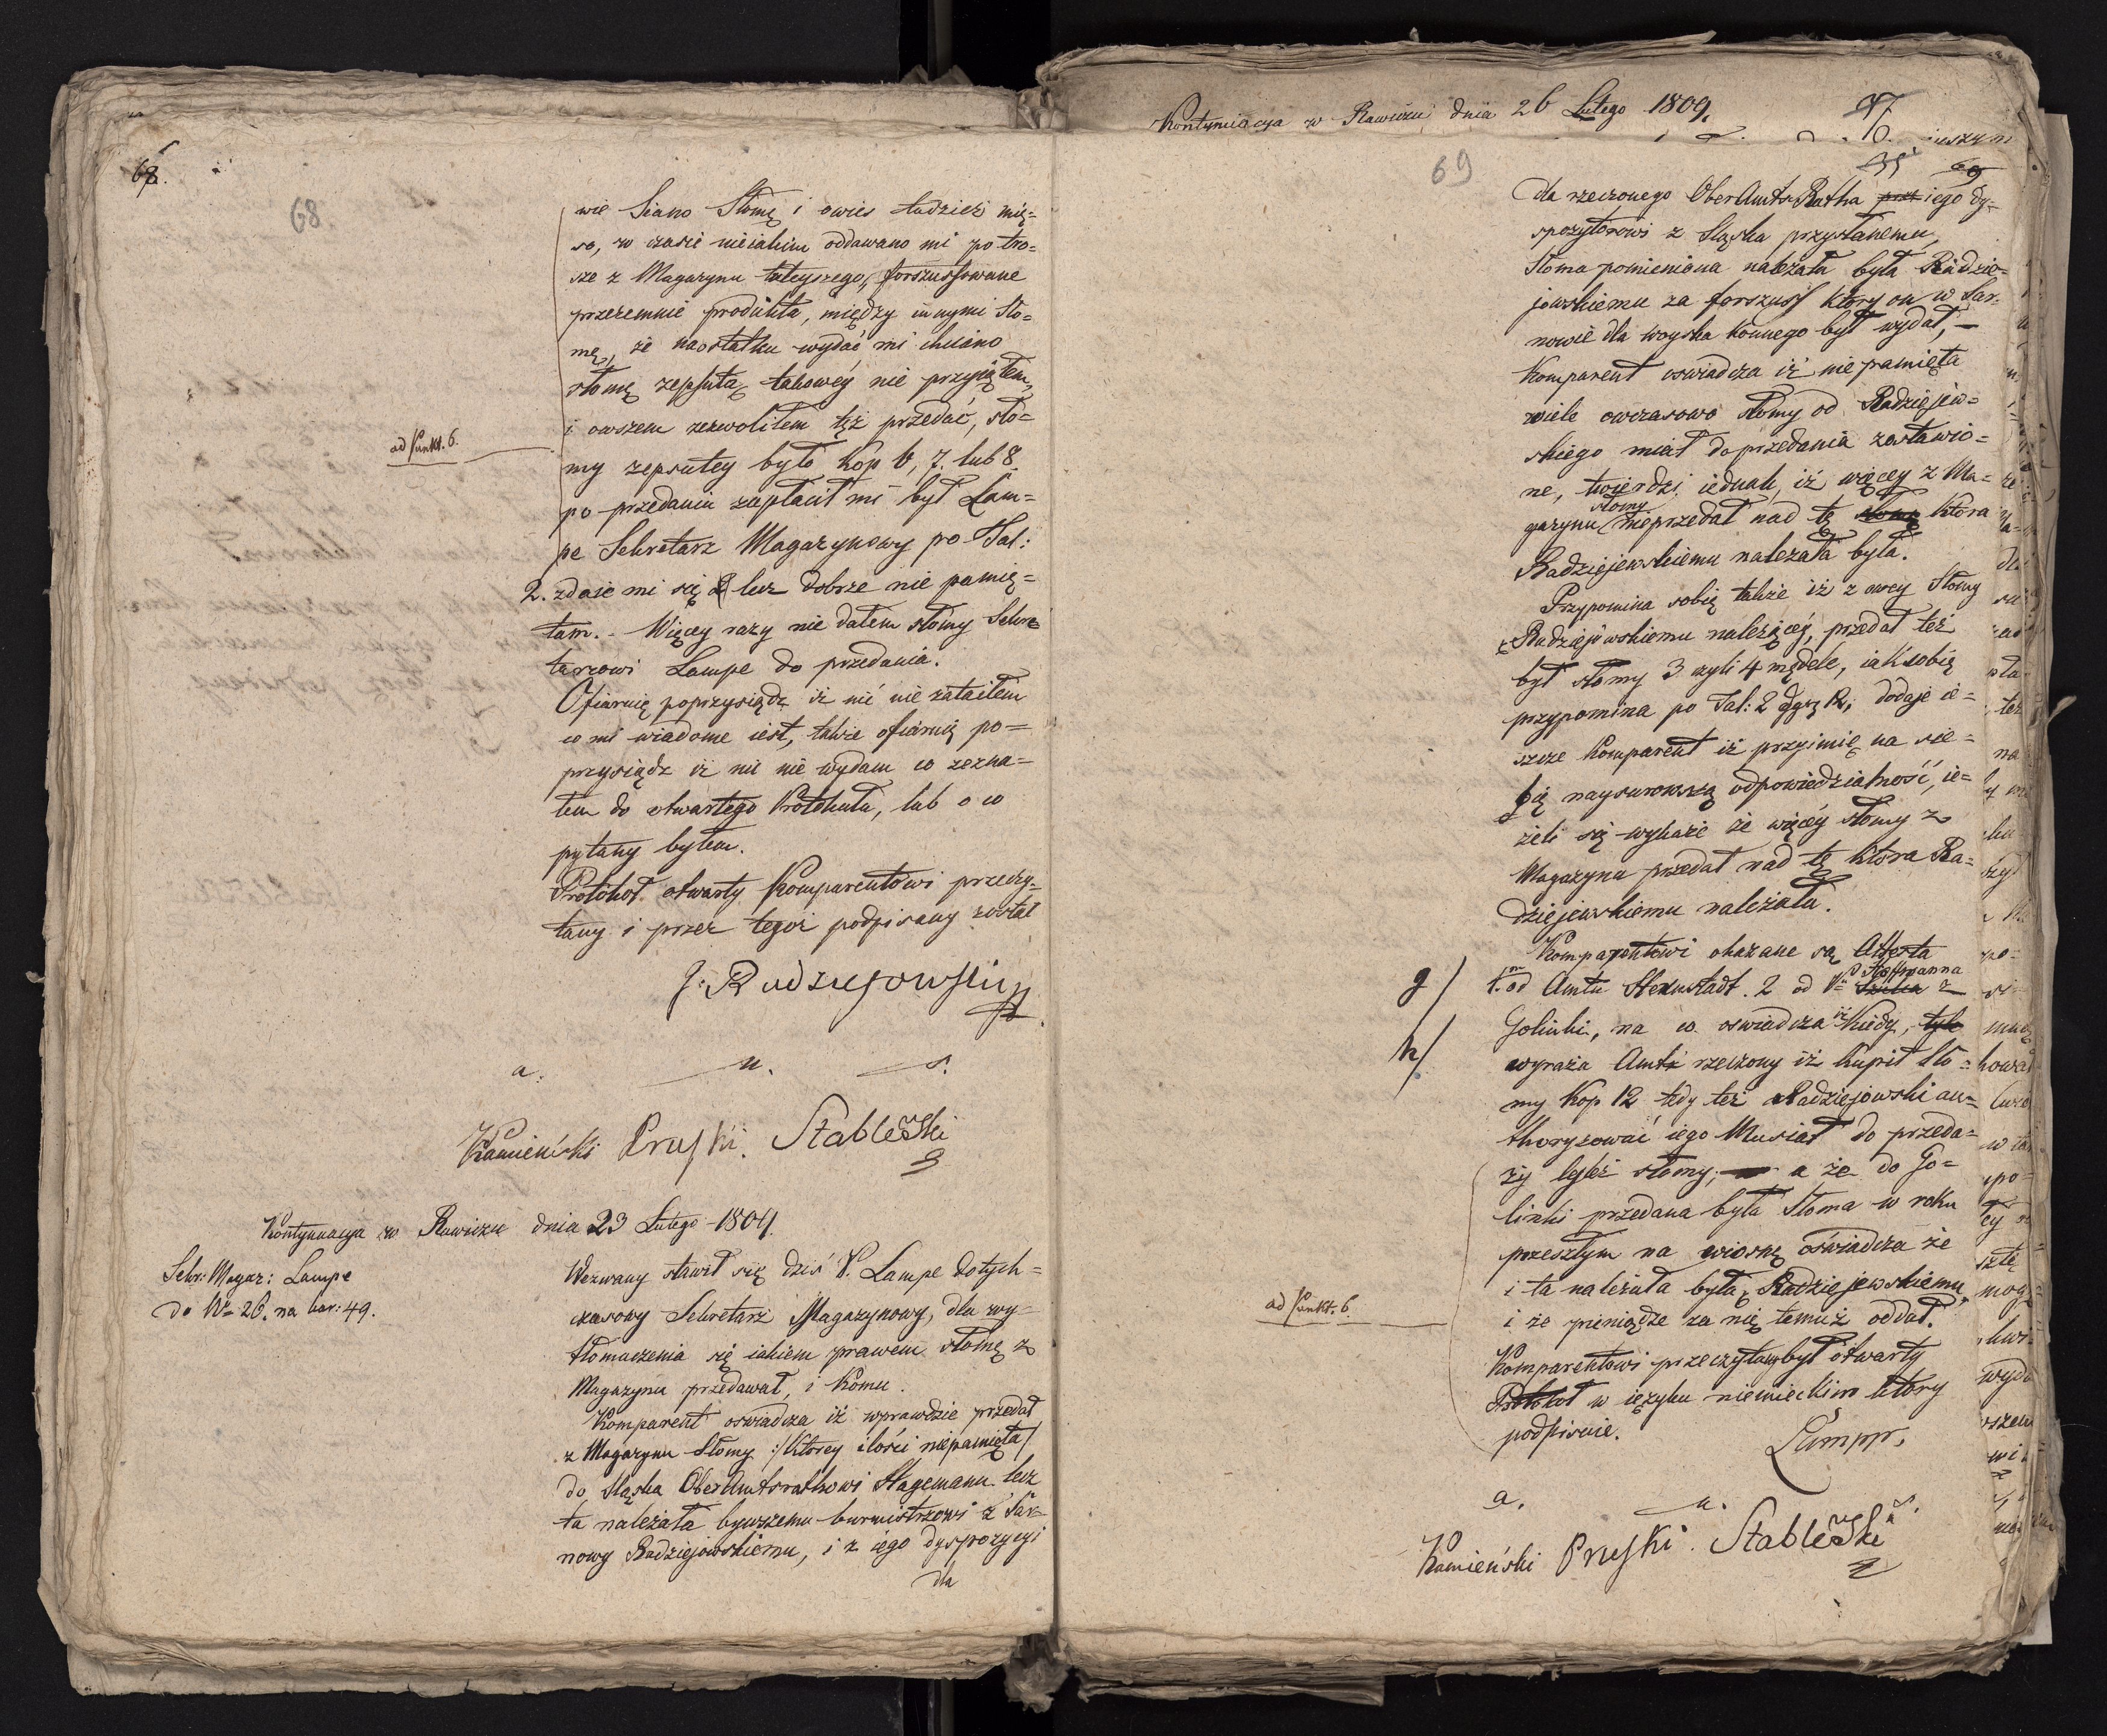 68.
68
wie Siano Słomę i owies tudzież mię=
so, w czasie nieiakim oddawano mi po tro=
sze z Magazynu tuteyszego, forszussowane
przezemnie produkta, między innymi Sło=
mę, że naostatku wydać mi chciano
słomę zepsutą, takowéy nie przyiąłem,
i owszem zezwoliłem téż przedać, sło=
ad Punkt. 6.
my zepsutey było kóp 6, 7. lub 8.
po przedaniu zapłacił mi był Lam=
pe Sekretarz Magazynowy po Tal:
2. zdaie mi się lecz dobrze nie pamię=
tam. - Więcey razy nie dałem słomy Sekre
tarzowi Lampe do przedania.
Ofiaruię poprzysiądz iż nic nie zataiłem
co mi wiadome iest, także ofiaruię po=
przysiądz iż nic nie wydam co zezna=
łem do otwartego Protokułu, lub o co
pytany byłem.
Protokół otwarty Komparentowi przeczy=
tany i przez tegoż podpisany został
J: Radziejowski
a. u. s.
Kamieński Pruski. Stableski
Kontynuacya w Rawiczu dnia 23 Lutego 1809.
Sekr: Magaz: Lampe
do Nr 26. na kar: 49.
Wezwany stawił się dziś P. Lampe dotych=
czasowy Sekretarz Magazynowy, dla wy=
tłomaczenia się iakiem prawem słomę z
Magazynu przedawał, i komu.
Komparent oświadcza iż wprawdzie przedał
z Magazynu Słomy :/ktorey ilości niepamięta/
do Sląska OberAmtsrathowi Stagemann. lecz
ta należała bywszemu burmistrzowi z Sar=
nowy Radziejowskiemu, i z iego dyspozycyi
dla
Kontynuacya w Rawiczu dnia 26 Lutego 1809.
69
69
dla rzeczonego OberAmtsRatha iego dy=
spozytorowi z Sląska przysłanemu,
Słoma pomieniona należała była Radzie=
jowskiemu za forszuss który on w Sar=
nowie dla woyska konnego był wydał, -
Komparent oswiadcza iż nie pamięta
wiele owczasowo słomy od Radziejew=
skiego miał do przedania zostawio=
ne, twierdzi iednak, iż więcey z Ma=
gazynu słomy nieprzedał nad tę która
Radziejewskiemu należała była.
Przypomina sobie także iż z owey Słomy
Radziejowskiemu należącéj, przedał też
był słomy 3 czyli 4 mędele, iak sobie
przypomina po Tal: 2 dgr 12, dodaje ie=
szcze Komparent iż przyimie na sie=
bie naysurowszą odpowiedzialność, ie=
żeli się wykaże że więcéy słomy z
Magazynu przedał nad tę która Ra=
dziejewskiemu należała.
Komparentowi okazane są Attesta
g/ 1. od Amtu Sternstadt. 2 od P. Hoffmanna z
h/ Golinki, na co oswiadcza iż kiedy,
wyraża Amt rzeczony iż kupił Sło=
my kop 12 tedy też Radziejowski au=
thoryzować iego Musiał do przeda=
ży tejże słomy; a że do Go=
linki przedana była Słoma w roku
przeszłym na wiosnę oświadcza że
i ta należała była Radziejewskiemu,
ad Punkt. 6.
i że pieniądze za nię temuż oddał.
Komparentowi przeczytany był otwarty
Protokół w ięzyku niemieckim który
podpisuie.
Lampe,
a. u. s.
Kamieński Pruski. Stableski